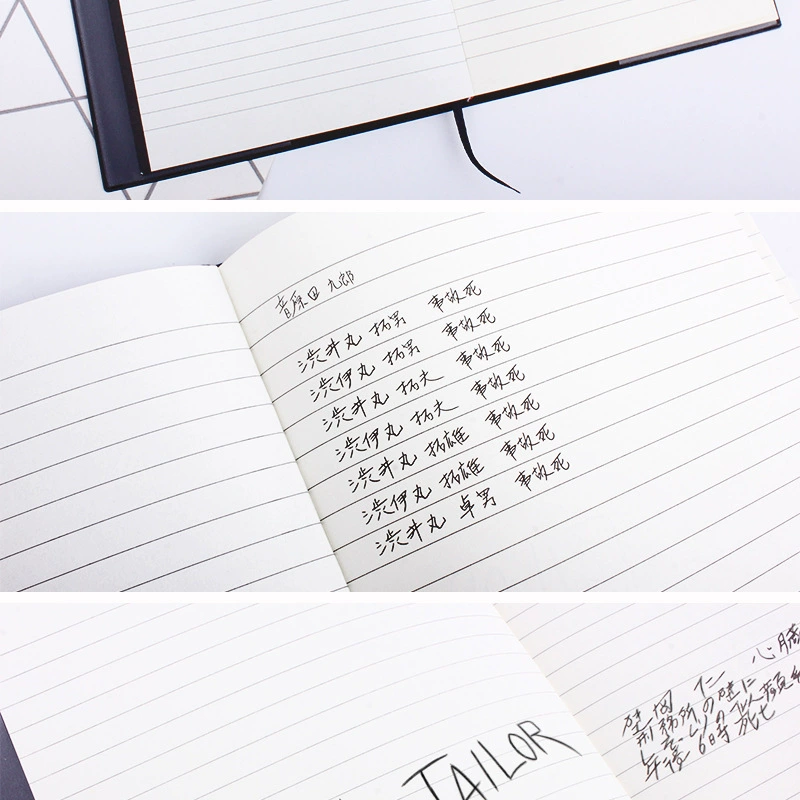 音原田 九郎
渋井丸 拓男 事故死
渋伊丸 拓男 事故死
渋井丸 拓夫 事故死
渋伊丸 拓夫 事故死
渋井丸 拓雄 事故死
渋伊丸 拓雄 事故死
渋井丸 卓男 事故死
TAILOR
仁 心臓
刑務所の壁に
午後 6時 死亡